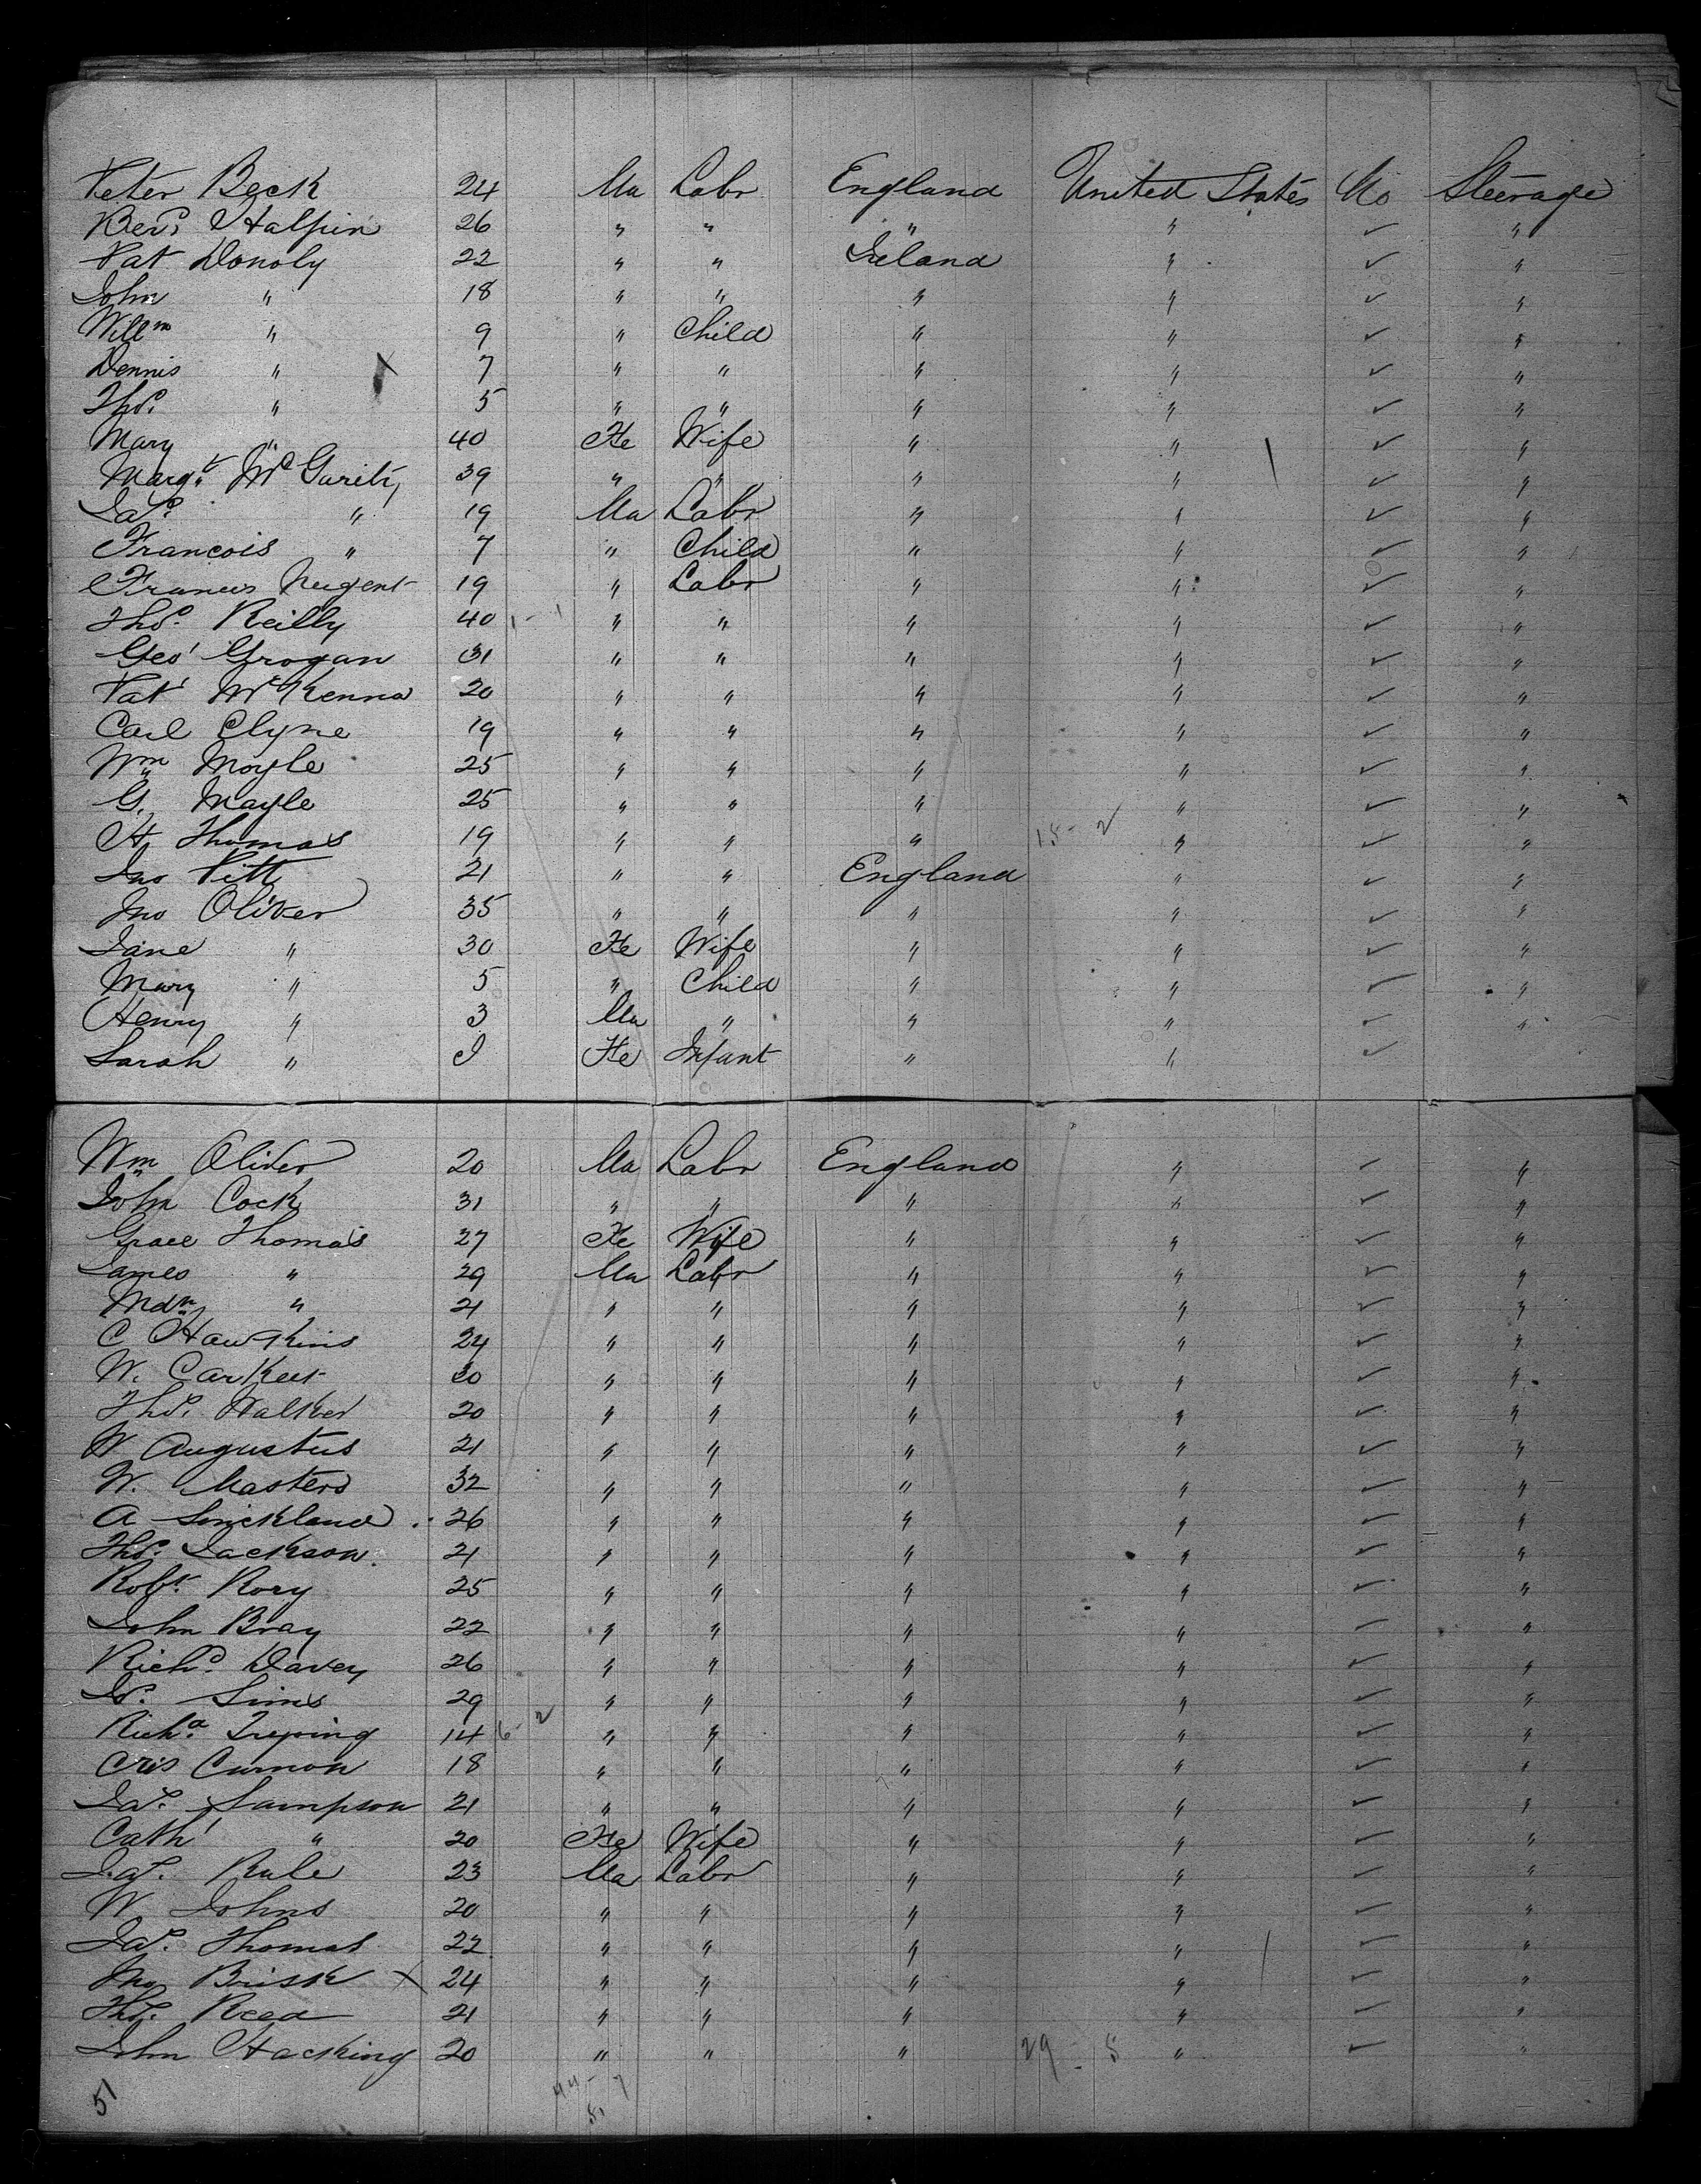 Peter Beck 24 Ma Labr England United States No Steerage
Berd Halpin 26 " " " " ✓ "
Pat Donoly 22 " " Ireland " ✓ "
John " 18 " " " " ✓ "
Willm " 9 " Child " " ✓ "
Dennis " 7 " " " " ✓ "
Thos. " 5 " " " " ✓ "
Mary " 40 Fe Wife " " ✓ "
Margt. McGarity 39 " " " " ✓ "
Jas. " 19 Ma Labr " " ✓ "
Francois " 7 " Child " " ✓ "
Francis Nugent 19 " Labr " " ✓ "
Thos. Reilly 40 1 - 1 " " " " ✓ "
Geo' Grogan 31 " " " " ✓ "
Pat' McKenna 20 " " " " ✓ "
Carl Clyne 19 " " " " ✓ "
Wm Moyle 25 " " " " ✓ "
G. Mayle 25 " " " " ✓ "
H. Thomas 19 " " " 18 - 2 " ✓ "
Jno Pitt 21 " " England " ✓ "
Jno Oliver 35 " " " " ✓ "
Jane " 30 Fe Wife " " ✓ "
Mary " 5 " Child " " ✓ "
Henry " 3 Ma " " " ✓ "
Sarah " I Fe Infant " " ✓
Wm Oliver 20 Ma Labr England " ✓ "
John Cock 31 " " " " ✓ "
Grace Thomas 27 Fe Wife " " ✓ "
James " 29 Ma Labr " " ✓ "
" 21 " " " " ✓ "
C Hawkins 24 " " " " ✓ "
W. Carkeet " " " " ✓ "
Thos. Walker 20 " " " " ✓ "
W Augustus 21 " " " " ✓ "
W. Masters 32 " " " " ✓ "
A 26 " " " " ✓ "
Thos. Jackson. 21 " " " " ✓ "
Robt. Rory 25 " " " " ✓ "
John Bray 22 " " " " ✓ "
Richd. Davey 26 " " " " ✓ "
Sims 29 " " " " ✓ "
Richd. 14 6 - 2 " " " " ✓ "
Cris Curnow 18 " " " " ✓ "
Jas. Sampson 21 " " " " ✓ "
Cath' " 20 Fe Wife " " ✓ "
Jas. Rule 23 Ma Labr " " ✓ "
W Johns 20 " " " " ✓ "
Jas. Thomas 22 " " " " ✓ "
Jno Brisk X 24 " " " " ✓ "
Thos. Read 21 " " " " ✓ "
John Hacking 20 " " " 29 - 5 " ✓ "
51 44 - 7
51